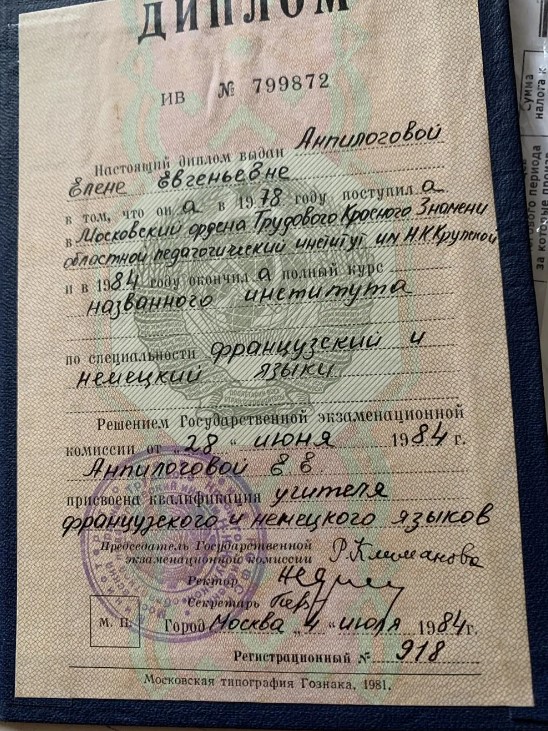 ДИПЛОМ
ИВ № 799872
Настоящий диплом выдан Анпилоговой
Елене Евгеньевне
в том, что он а в 1978 году поступил а
в Московский ордена Трудового Красного Знамени
областной педагогический институт им Н.К.Крупской
и в 1984 году окончил а полный курс
названного института
по специальности французский и
немецкий языки
Решением Государственной экзаменационной
комиссии от „28" июня 1984 г.
Анпилоговой Е Е
присвоена квалификация учителя
французского и немецкого языков
Председатель Государственной
экзаменационной комиссии Р.Климанова
Ректор
Секретарь
М. П.
Город Москва „4" июля 1984г.
Регистрационный № 918
Московская типография Гознака, 1981.
Сумма
налога к
ового периода